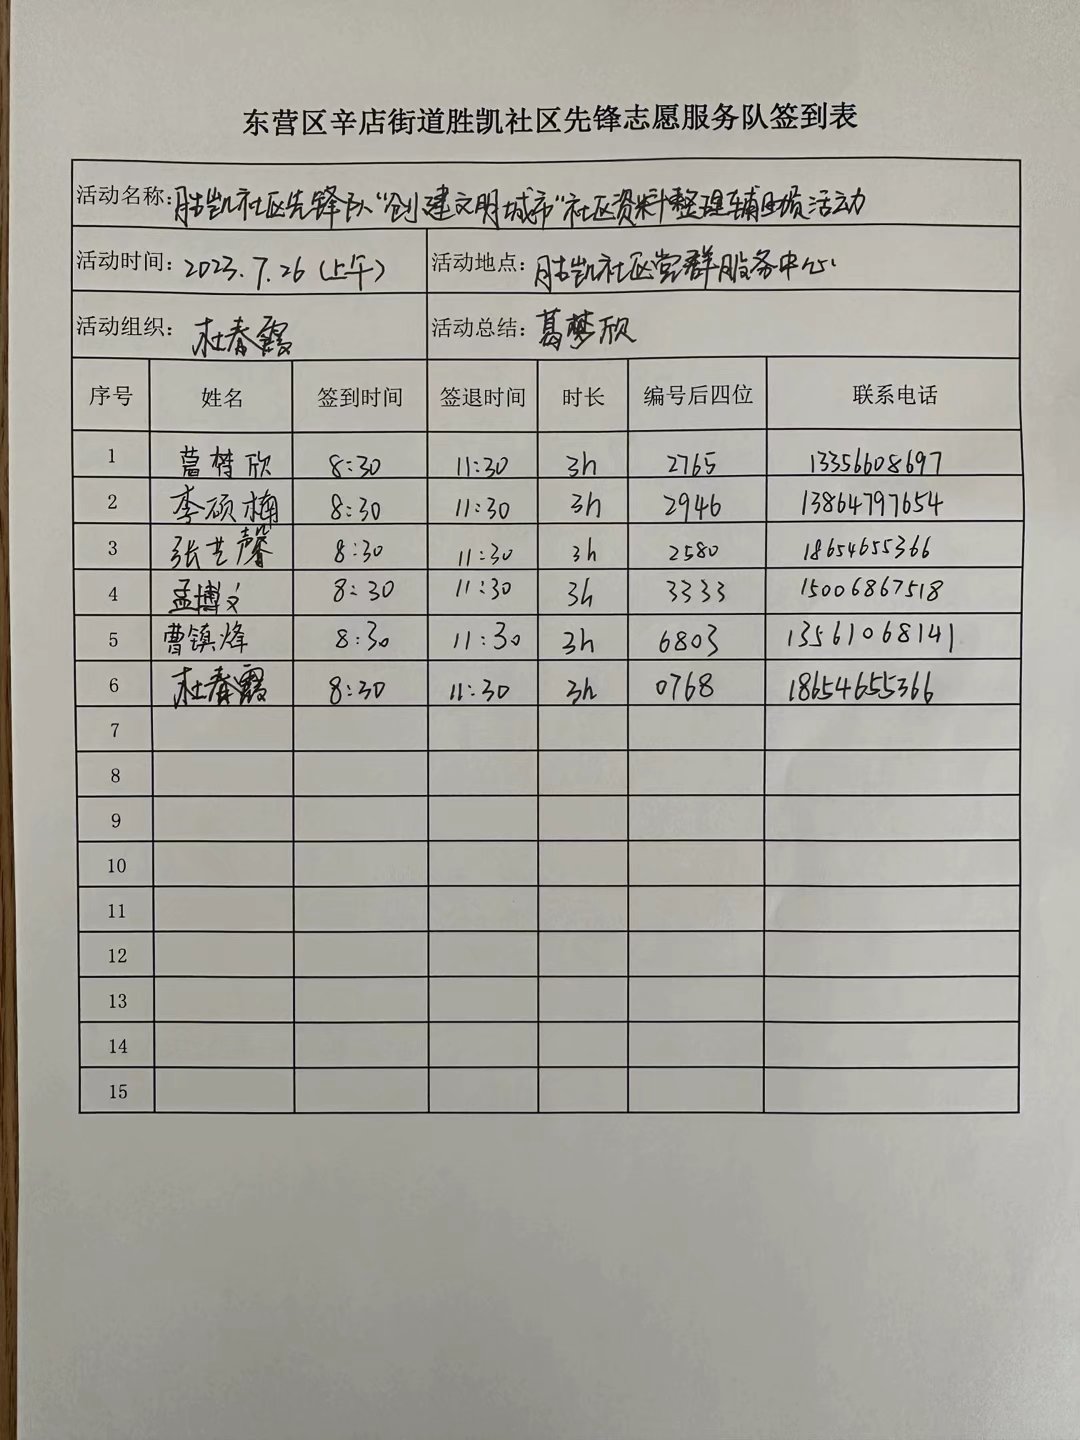 东营区辛店街道胜凯社区先锋志愿服务队签到表
活动名称：胜凯社区先锋队“创建文明城市”社区资料整理辅助员活动
活动时间：2023.7.26（上午） 活动地点：胜凯社区党群服务中心
活动组织：杜春霞 活动总结：葛梦欣
序号 姓名 签到时间 签退时间 时长 编号后四位 联系电话
1 葛梦欣 8:30 11:30 3h 2765 13356608697
2 李硕梅 8:30 11:30 3h 2946 13864797654
3 张艺馨 8:30 11:30 3h 2580 18654655366
4 孟博文 8:30 11:30 3h 3333 15006867518
5 曹镇烽 8:30 11:30 3h 6803 13561068141
6 杜春霞 8:30 11:30 3h 0768 18654655366
7
8
9
10
11
12
13
14
15